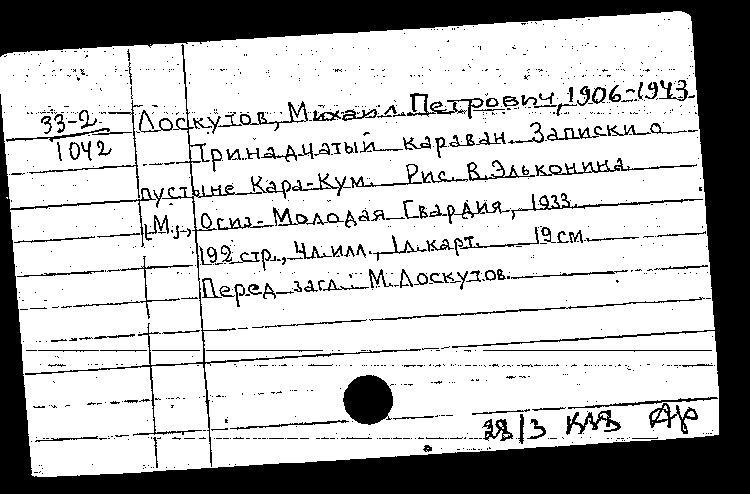 33-2
1042
Лоскутов, Михаил Петрович, 1906-1943
Тринадчатый караван. Записки о
пустыне Кара-Кум. Рис. В. Эльконина.
[М.], Огиз-Молодая Гвардия, 1933.
192 стр., 4 л. илл., 1 л. карт. 19 см.
Перед загл.: М. Лоскутов.
28/3